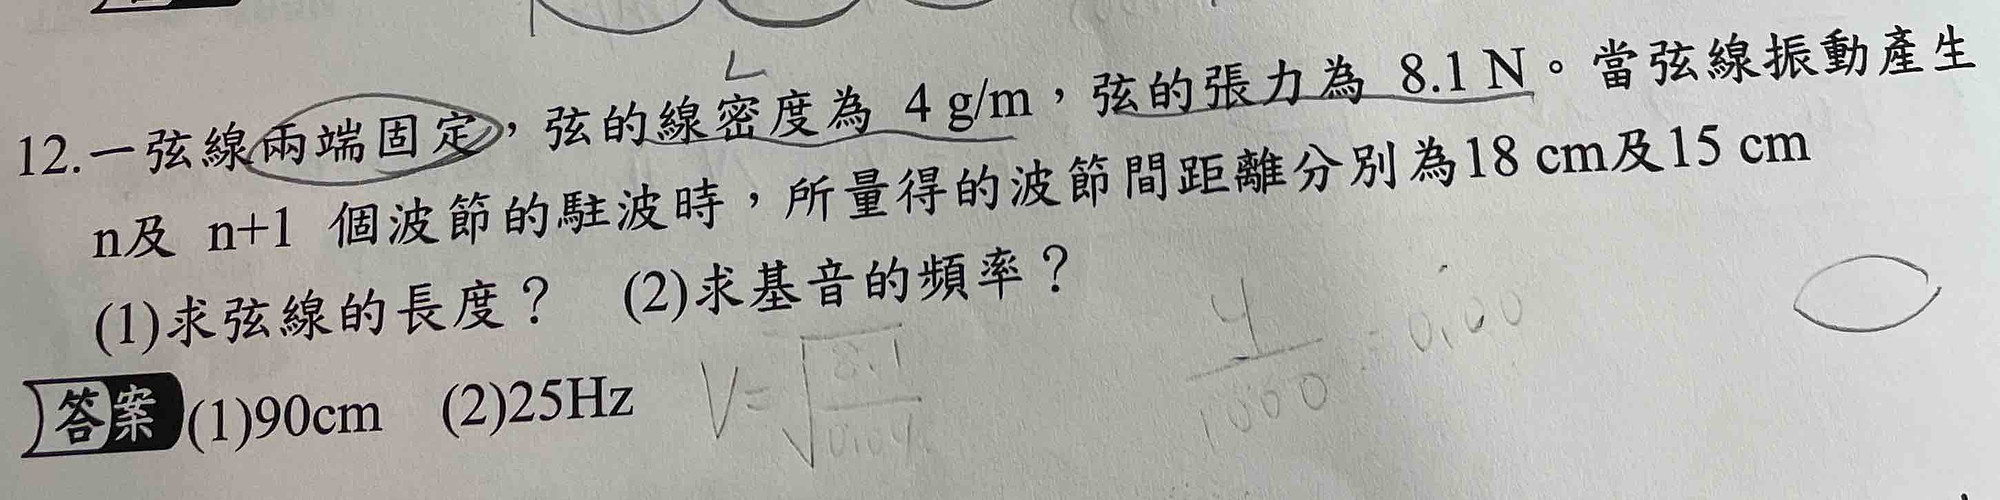 L
12.一弦線兩端固定，弦的線密度為 4 g/m，弦的張力為 8.1 N。當弦線振動產生
n及 n+1 個波節的駐波時，所量得的波節間距離分別為18 cm及15 cm
(1)求弦線的長度？ (2)求基音的頻率？
答案 (1)90cm (2)25Hz